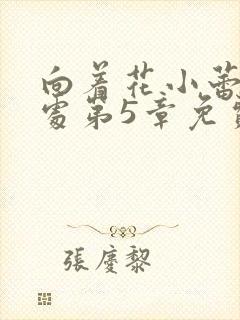 向着花小蕾
处第5章免
張慶黎